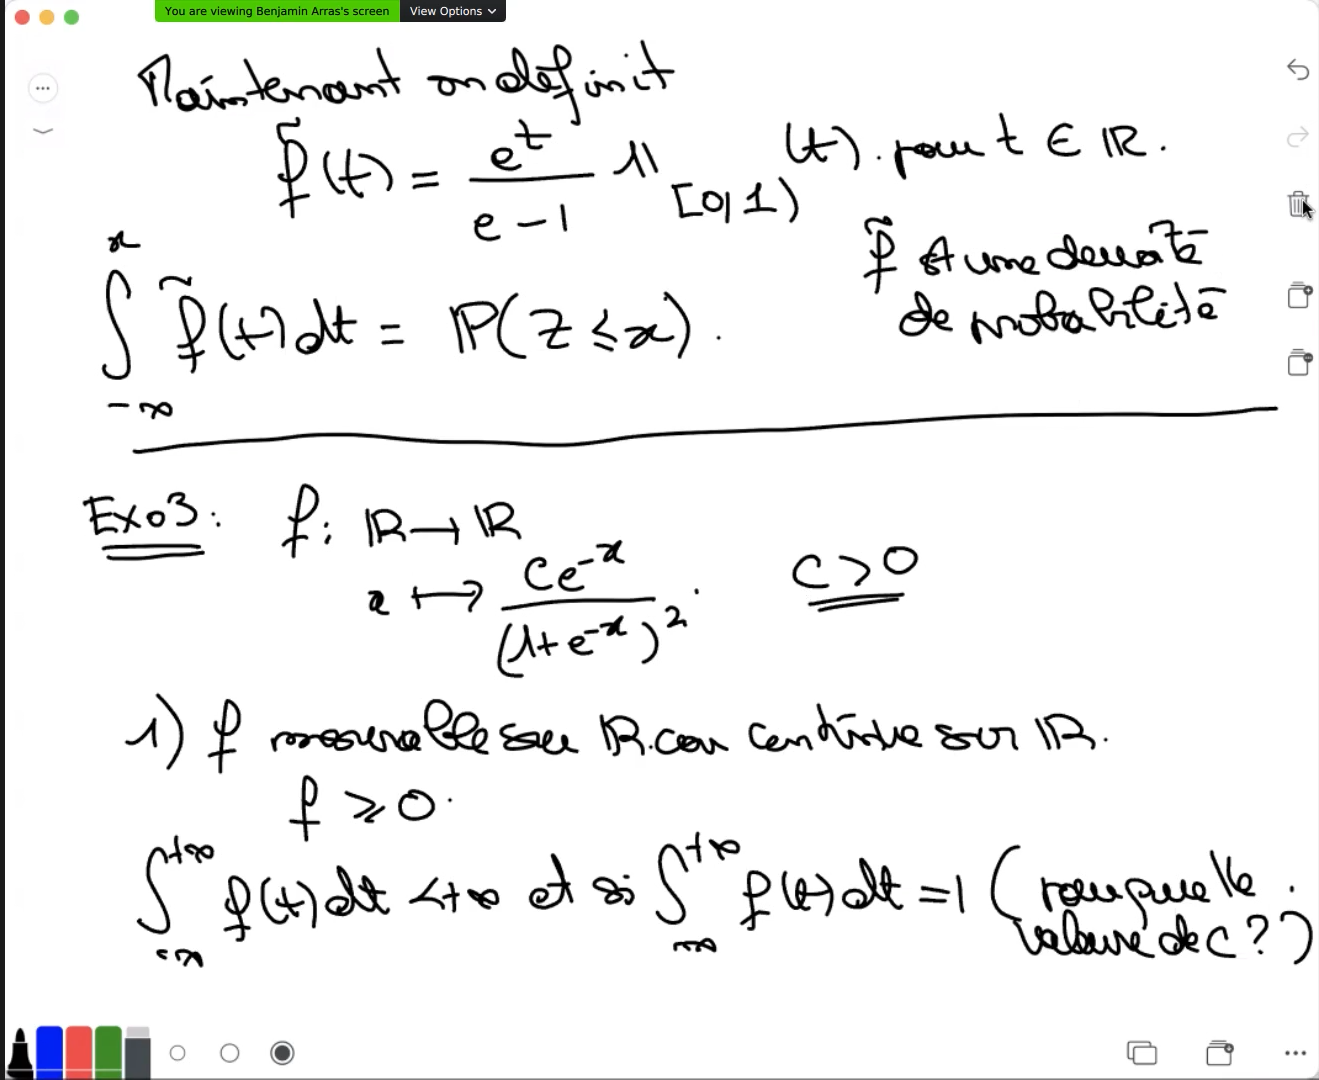 You are viewing Benjamin Arras's screen View Options
Maintenant on définit
f̃(t) = e^t / (e - 1) 𝟙_[0,1) (t). pour t ∈ ℝ.
f̃ est une densité
de probabilité
∫_{-∞}^{x} f̃(t)dt = ℙ(Z ≤ x).
Exo3: f: ℝ → ℝ
x ↦ Ce^{-x} / (1+e^{-x})^2. C>0
1) f mesurable sur ℝ. car continue sur ℝ.
f ≥ 0.
∫_{-∞}^{+∞} f(t)dt < +∞ et si ∫_{-∞}^{+∞} f(t)dt = 1 (pour quelle
valeur de C?)